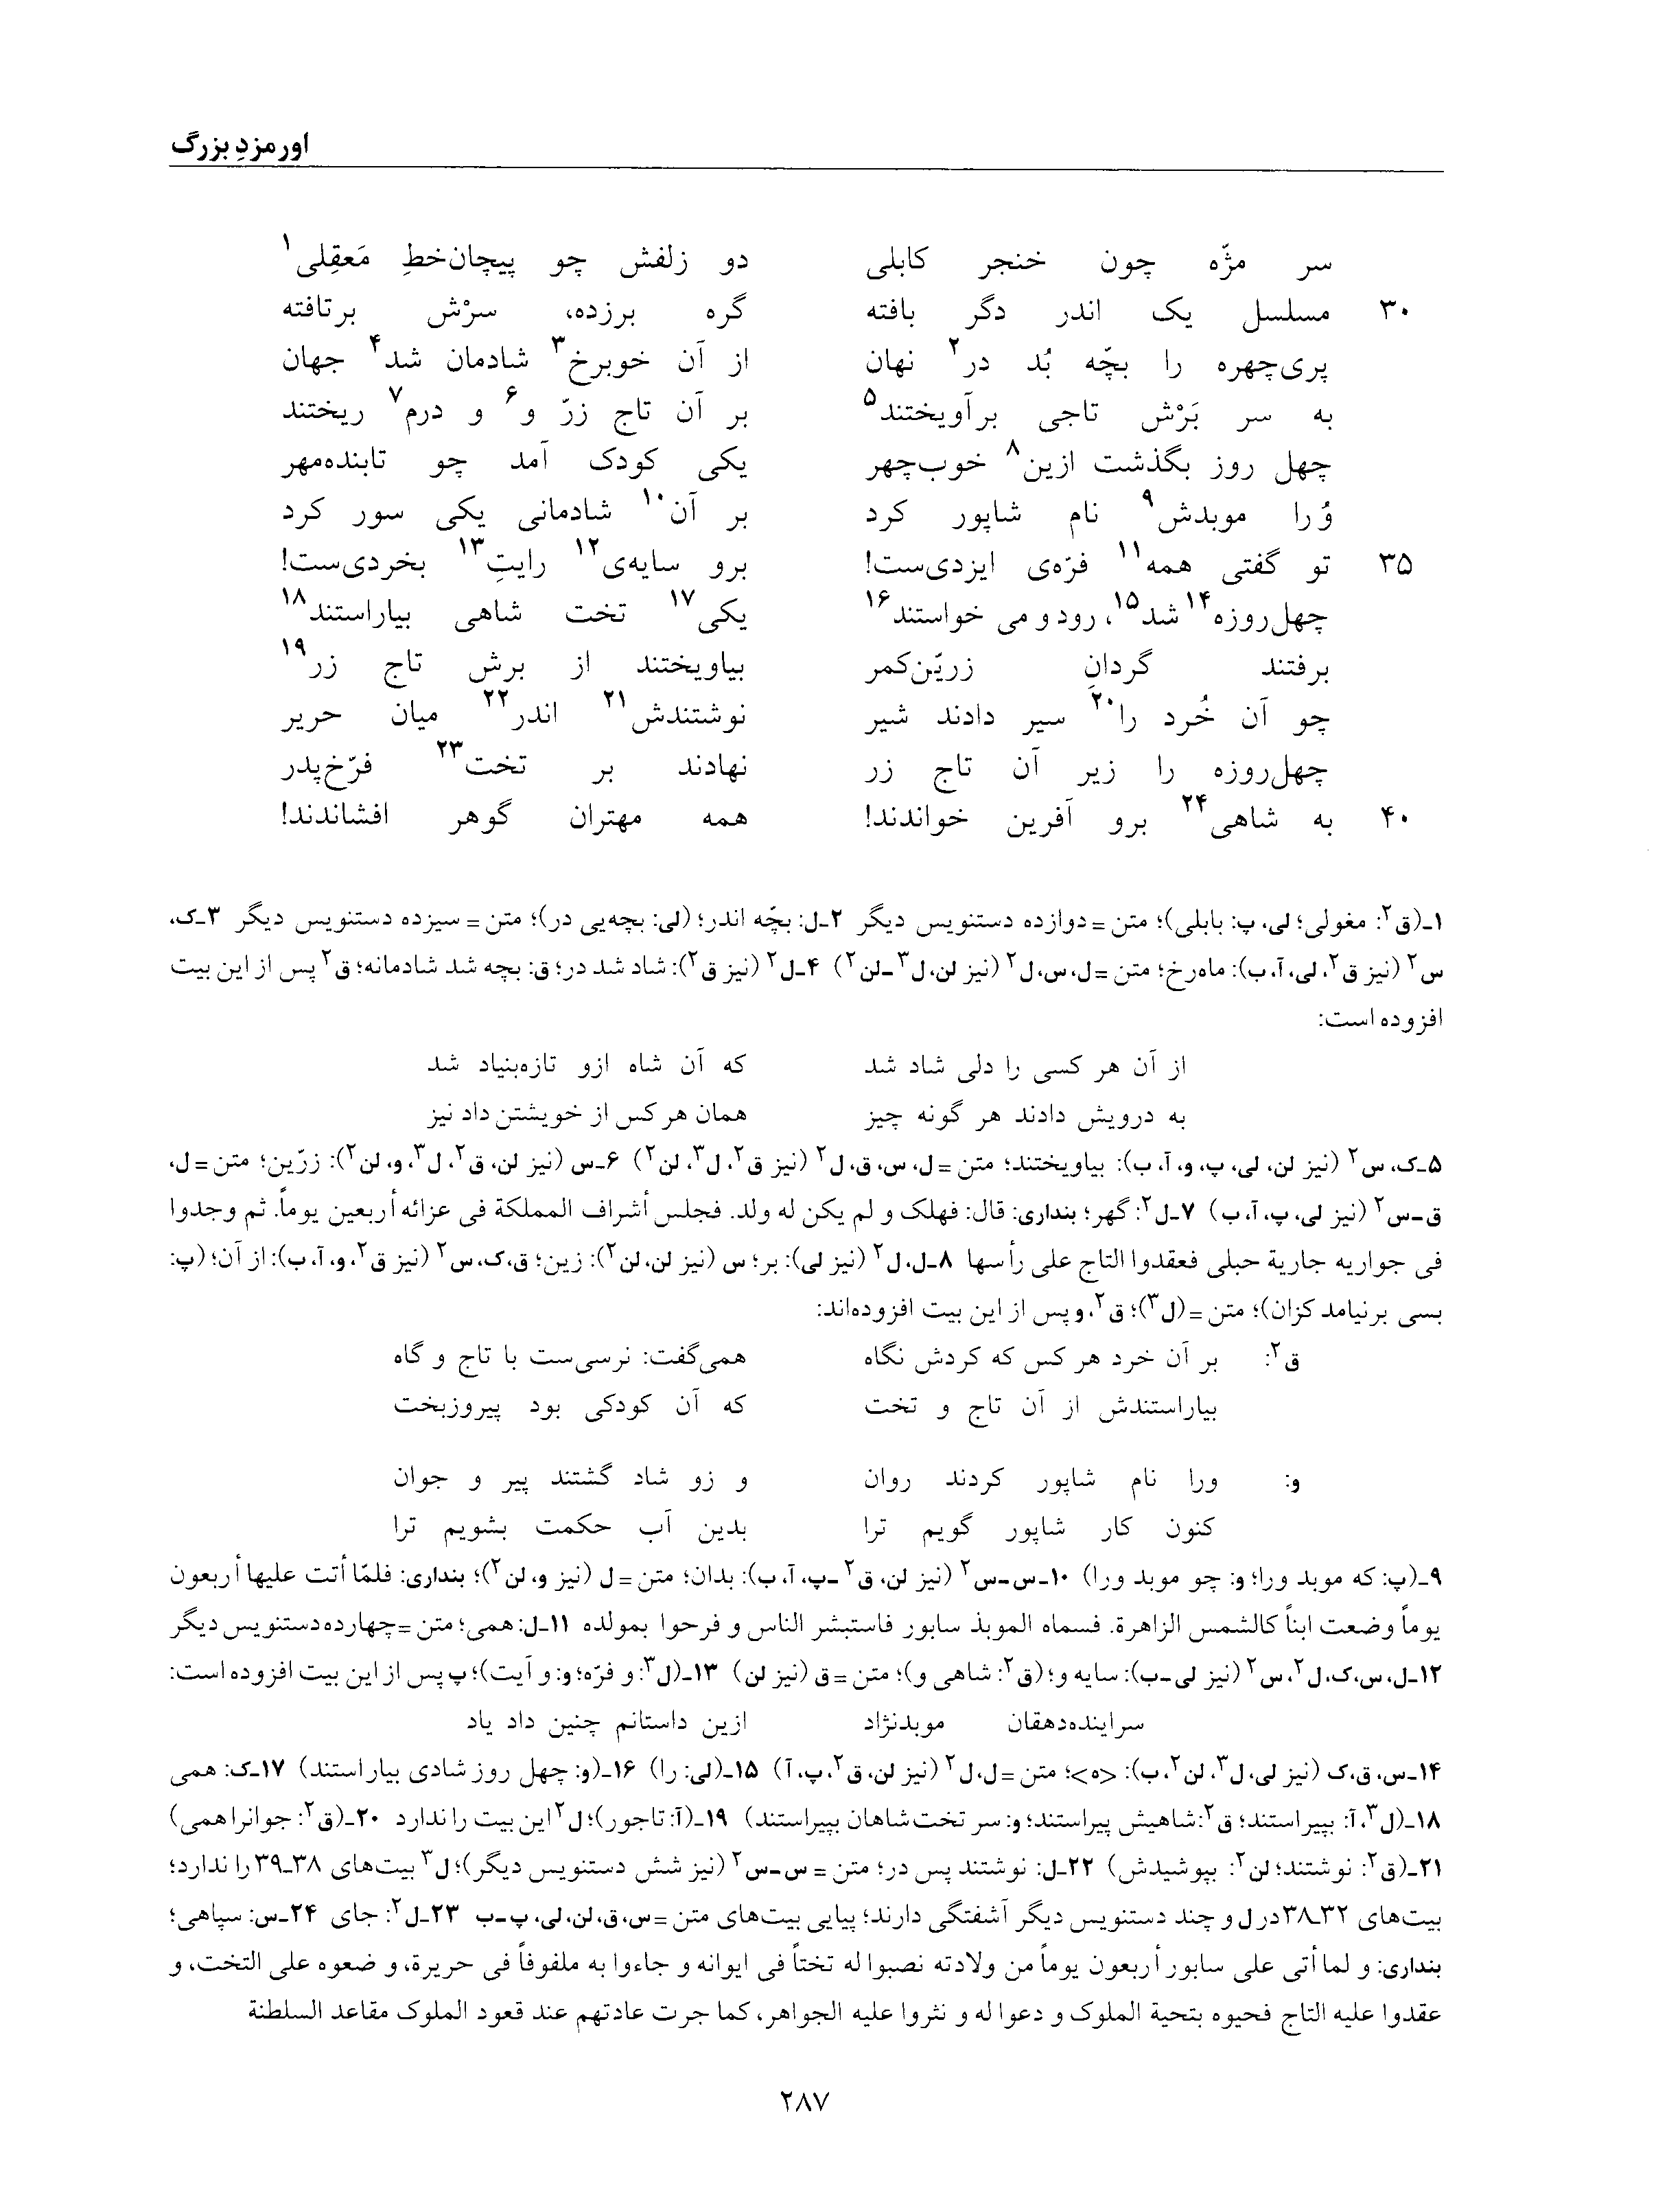 اورمزدِ بزرگ
سر مژّه چون خنجر کابلی دو زلفش چو پیچان‌خطِ مَعقِلی۱
۳۰ مسلسل یک اندر دگر بافته گره برزده، سرْش برتافته
پری‌چهره را بچّه بُد در۲ نهان از آن خوبرخ۳ شادمان شد۴ جهان
به سر بَرْش تاجی برآویختند۵ بر آن تاج زرّ و۶ و درم۷ ریختند
چهل روز بگذشت ازین۸ خوب‌چهر یکی کودک آمد چو تابنده‌مهر
وُرا موبدش۹ نام شاپور کرد بر آن۱۰ شادمانی یکی سور کرد
۳۵ تو گفتی همه۱۱ فرّه‌ی ایزدی‌ست! برو سایه‌ی۱۲ رایتِ۱۳ بخردی‌ست!
چهل‌روزه۱۴ شد۱۵، رود و می خواستند۱۶ یکی۱۷ تخت شاهی بیاراستند۱۸
برفتند گردانِ زریّن‌کمر بیاویختند از برش تاج زر۱۹
چو آن خُرد را۲۰ سیر دادند شیر نوشتندش۲۱ اندر۲۲ میان حریر
چهل‌روزه را زیر آن تاج زر نهادند بر تخت۲۳ فرّخ‌پدر
۴۰ به شاهی۲۴ برو آفرین خواندند! همه مهتران گوهر افشاندند!
۱ـ(ق۲: مغولی؛ لی، پ: بابلی)؛ متن = دوازده دستنویس دیگر ۲ـ ل: بچّه اندر؛ (لی: بچه‌یی در)؛ متن = سیزده دستنویس دیگر ۳ـ ک،
س۲ (نیز ق۲، لی، آ، ب): ماه‌رخ؛ متن = ل، س، ل۲ (نیز لن، ل۳ ـ لن۲) ۴ـ ل۲ (نیز ق۲): شاد شد در؛ ق: بچه شد شادمانه؛ ق۲ پس از این بیت
افزوده است:
از آن هر کسی را دلی شاد شد که آن شاه ازو تازه‌بنیاد شد
به درویش دادند هر گونه چیز همان هر کس از خویشتن داد نیز
۵ـ ک، س۲ (نیز لن، لی، پ، و، آ، ب): بیاویختند؛ متن = ل، س، ق، ل۲ (نیز ق۲، ل۳، لن۲) ۶ـ س (نیز لن، ق۲، ل۳، و، لن۲): زرّین؛ متن = ل،
ق ـ س۲ (نیز لی، پ، آ، ب) ۷ـ ل۲: گهر؛ بنداری: قال: فهلک و لم یکن له ولد. فجلس أشراف المملکة فی عزائه أربعین یوماً. ثم وجدوا
فی جواریه جاریة حبلی فعقدوا التاج علی رأسها ۸ـ ل، ل۲ (نیز لی): بر؛ س (نیز لن، لن۲): زین؛ ق، ک، س۲ (نیز ق۲، و، آ، ب): از آن؛ (پ:
بسی برنیامد کزان)؛ متن = (ل۳)؛ ق۲، و پس از این بیت افزوده‌اند:
ق۲: بر آن خرد هر کس که کردش نگاه همی‌گفت: نرسی‌ست با تاج و گاه
بیاراستندش از آن تاج و تخت که آن کودکی بود پیروزبخت
و: ورا نام شاپور کردند روان و زو شاد گشتند پیر و جوان
کنون کار شاپور گویم ترا بدین آب حکمت بشویم ترا
۹ـ (پ: که موبد ورا؛ و: چو موبد ورا) ۱۰ـ س ـ س۲ (نیز لن، ق۲ ـ پ، آ، ب): بدان؛ متن = ل (نیز و، لن۲)؛ بنداری: فلمّا أتت علیها أربعون
یوماً وضعت ابناً کالشمس الزاهرة. فسماه الموبذ سابور فاستبشر الناس و فرحوا بمولده ۱۱ـ ل: همی؛ متن = چهارده دستنویس دیگر
۱۲ـ ل، س، ک، ل۲، س۲ (نیز لی ـ ب): سایه و؛ (ق۲: شاهی و)؛ متن = ق (نیز لن) ۱۳ـ (ل۳: و فرّه؛ و: و آیت)؛ پ پس از این بیت افزوده است:
سراینده‌دهقان موبدنژاد ازین داستانم چنین داد یاد
۱۴ـ س، ق، ک (نیز لی، ل۳، لن۲، ب): <ه>؛ متن = ل، ل۲ (نیز لن، ق۲، پ، آ) ۱۵ـ (لی: را) ۱۶ـ (و: چهل روز شادی بیاراستند) ۱۷ـ ک: همی
۱۸ـ (ل۳، آ: بپیراستند؛ ق۲: شاهیش پیراستند؛ و: سر تخت شاهان بپیراستند) ۱۹ـ (آ: تاجور)؛ ل۲ این بیت را ندارد ۲۰ـ (ق۲: جوانرا همی)
۲۱ـ (ق۲: نوشتند؛ لن۲: بپوشیدش) ۲۲ـ ل: نوشتند پس در؛ متن = س ـ س۲ (نیز شش دستنویس دیگر)؛ ل۳ بیت‌های ۳۸ـ۳۹ را ندارد؛
بیت‌های ۳۲ـ۳۸ در ل و چند دستنویس دیگر آشفتگی دارند؛ پیایی بیت‌های متن = س، ق، لن، لی، پ ـ ب ۲۳ـ ل۲: جای ۲۴ـ س: سپاهی؛
بنداری: و لما أتی علی سابور أربعون یوماً من ولادته نصبوا له تختاً فی ایوانه و جاءوا به ملفوفاً فی حریرة، و ضعوه علی التخت، و
عقدوا علیه التاج فحیوه بتحیة الملوک و دعوا له و نثروا علیه الجواهر، کما جرت عادتهم عند قعود الملوک مقاعد السلطنة
۲۸۷